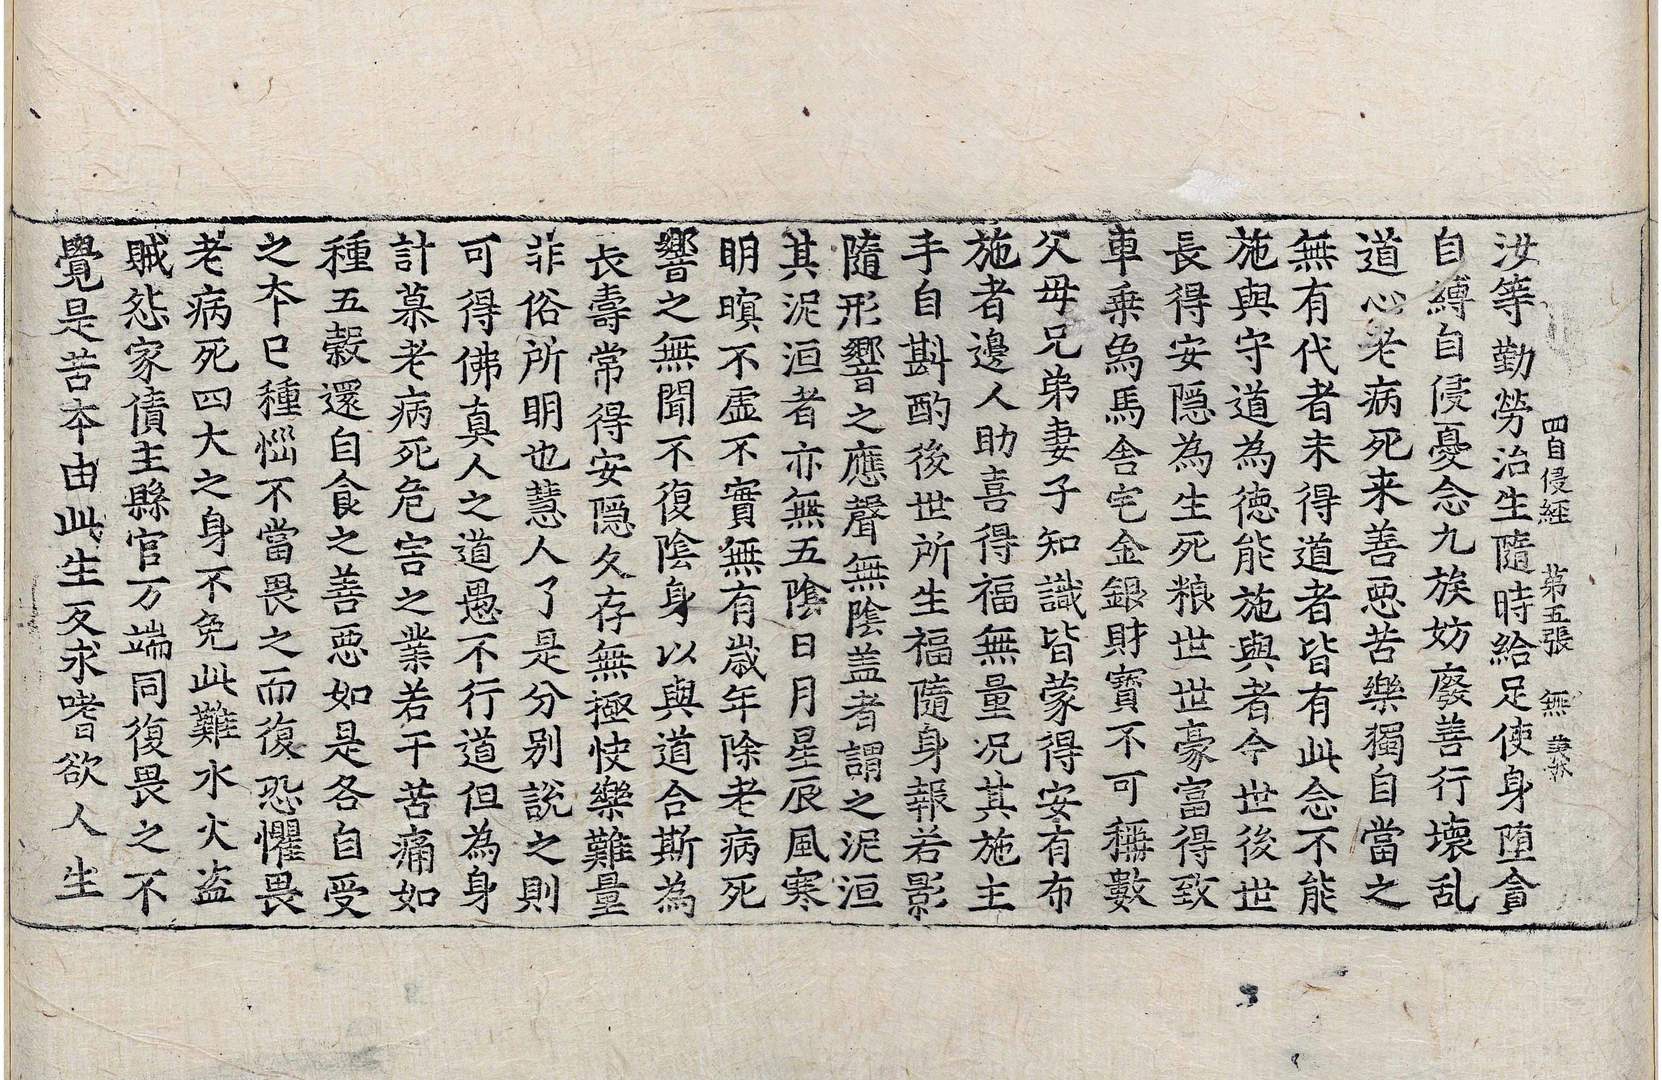 四自侵経　第五張　無
汝等勤勞治生隨時給足使身堕貪
自縛自侵憂念九族妨廢善行壊乱
道心老病死来善悪苦樂獨自當之
無有代者未得道者皆有此念不能
施與守道為徳能施與者今世後世
長得安隠為生死粮世世豪富得致
車乗象馬舎宅金銀財寶不可稱數
父母兄弟妻子知識皆蒙得安有布
施者邊人助喜得福無量况其施主
手自斟酌後世所生福隨身報若影
隨形響之應聲無陰盖者謂之泥洹
其泥洹者亦無五陰日月星辰風寒
明暝不虚不實無有歳年除老病死
響之無聞不復陰身以與道合斯為
長壽常得安隠久存無極快樂難量
非俗所明也慧人了是分別説之則
可得佛真人之道愚不行道但為身
計慕老病死危害之業若干苦痛如
種五穀還自食之善悪如是各自受
之夲已種惱不當畏之而復恐懼畏
老病死四大之身不免此難水火盗
賊怨家債主縣官万端同復畏之不
覺是苦夲由此生反求嗜欲人生